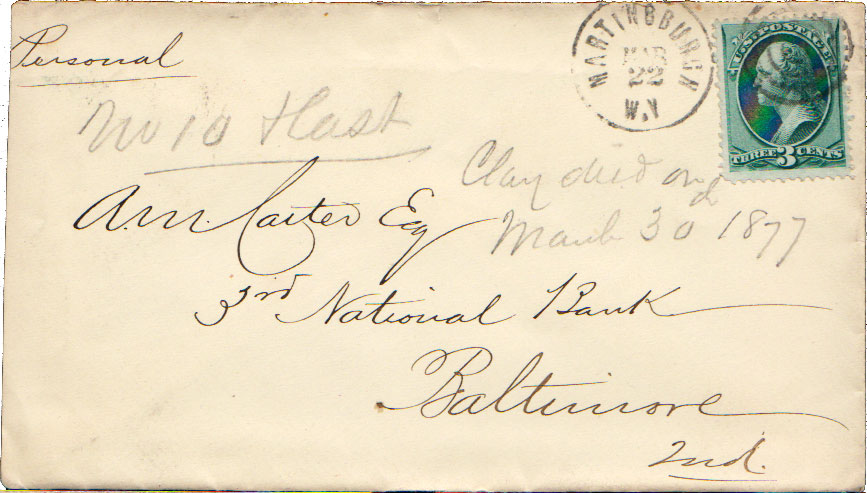 Personal
MARTINSBURGH
MAR
22
W.V
U.S. POSTAGE
THREE 3 CENTS
No 10 & last
Clay died on
March 30d 1877
A.M. Carter Esq
3rd National Bank
Baltimore
Md.